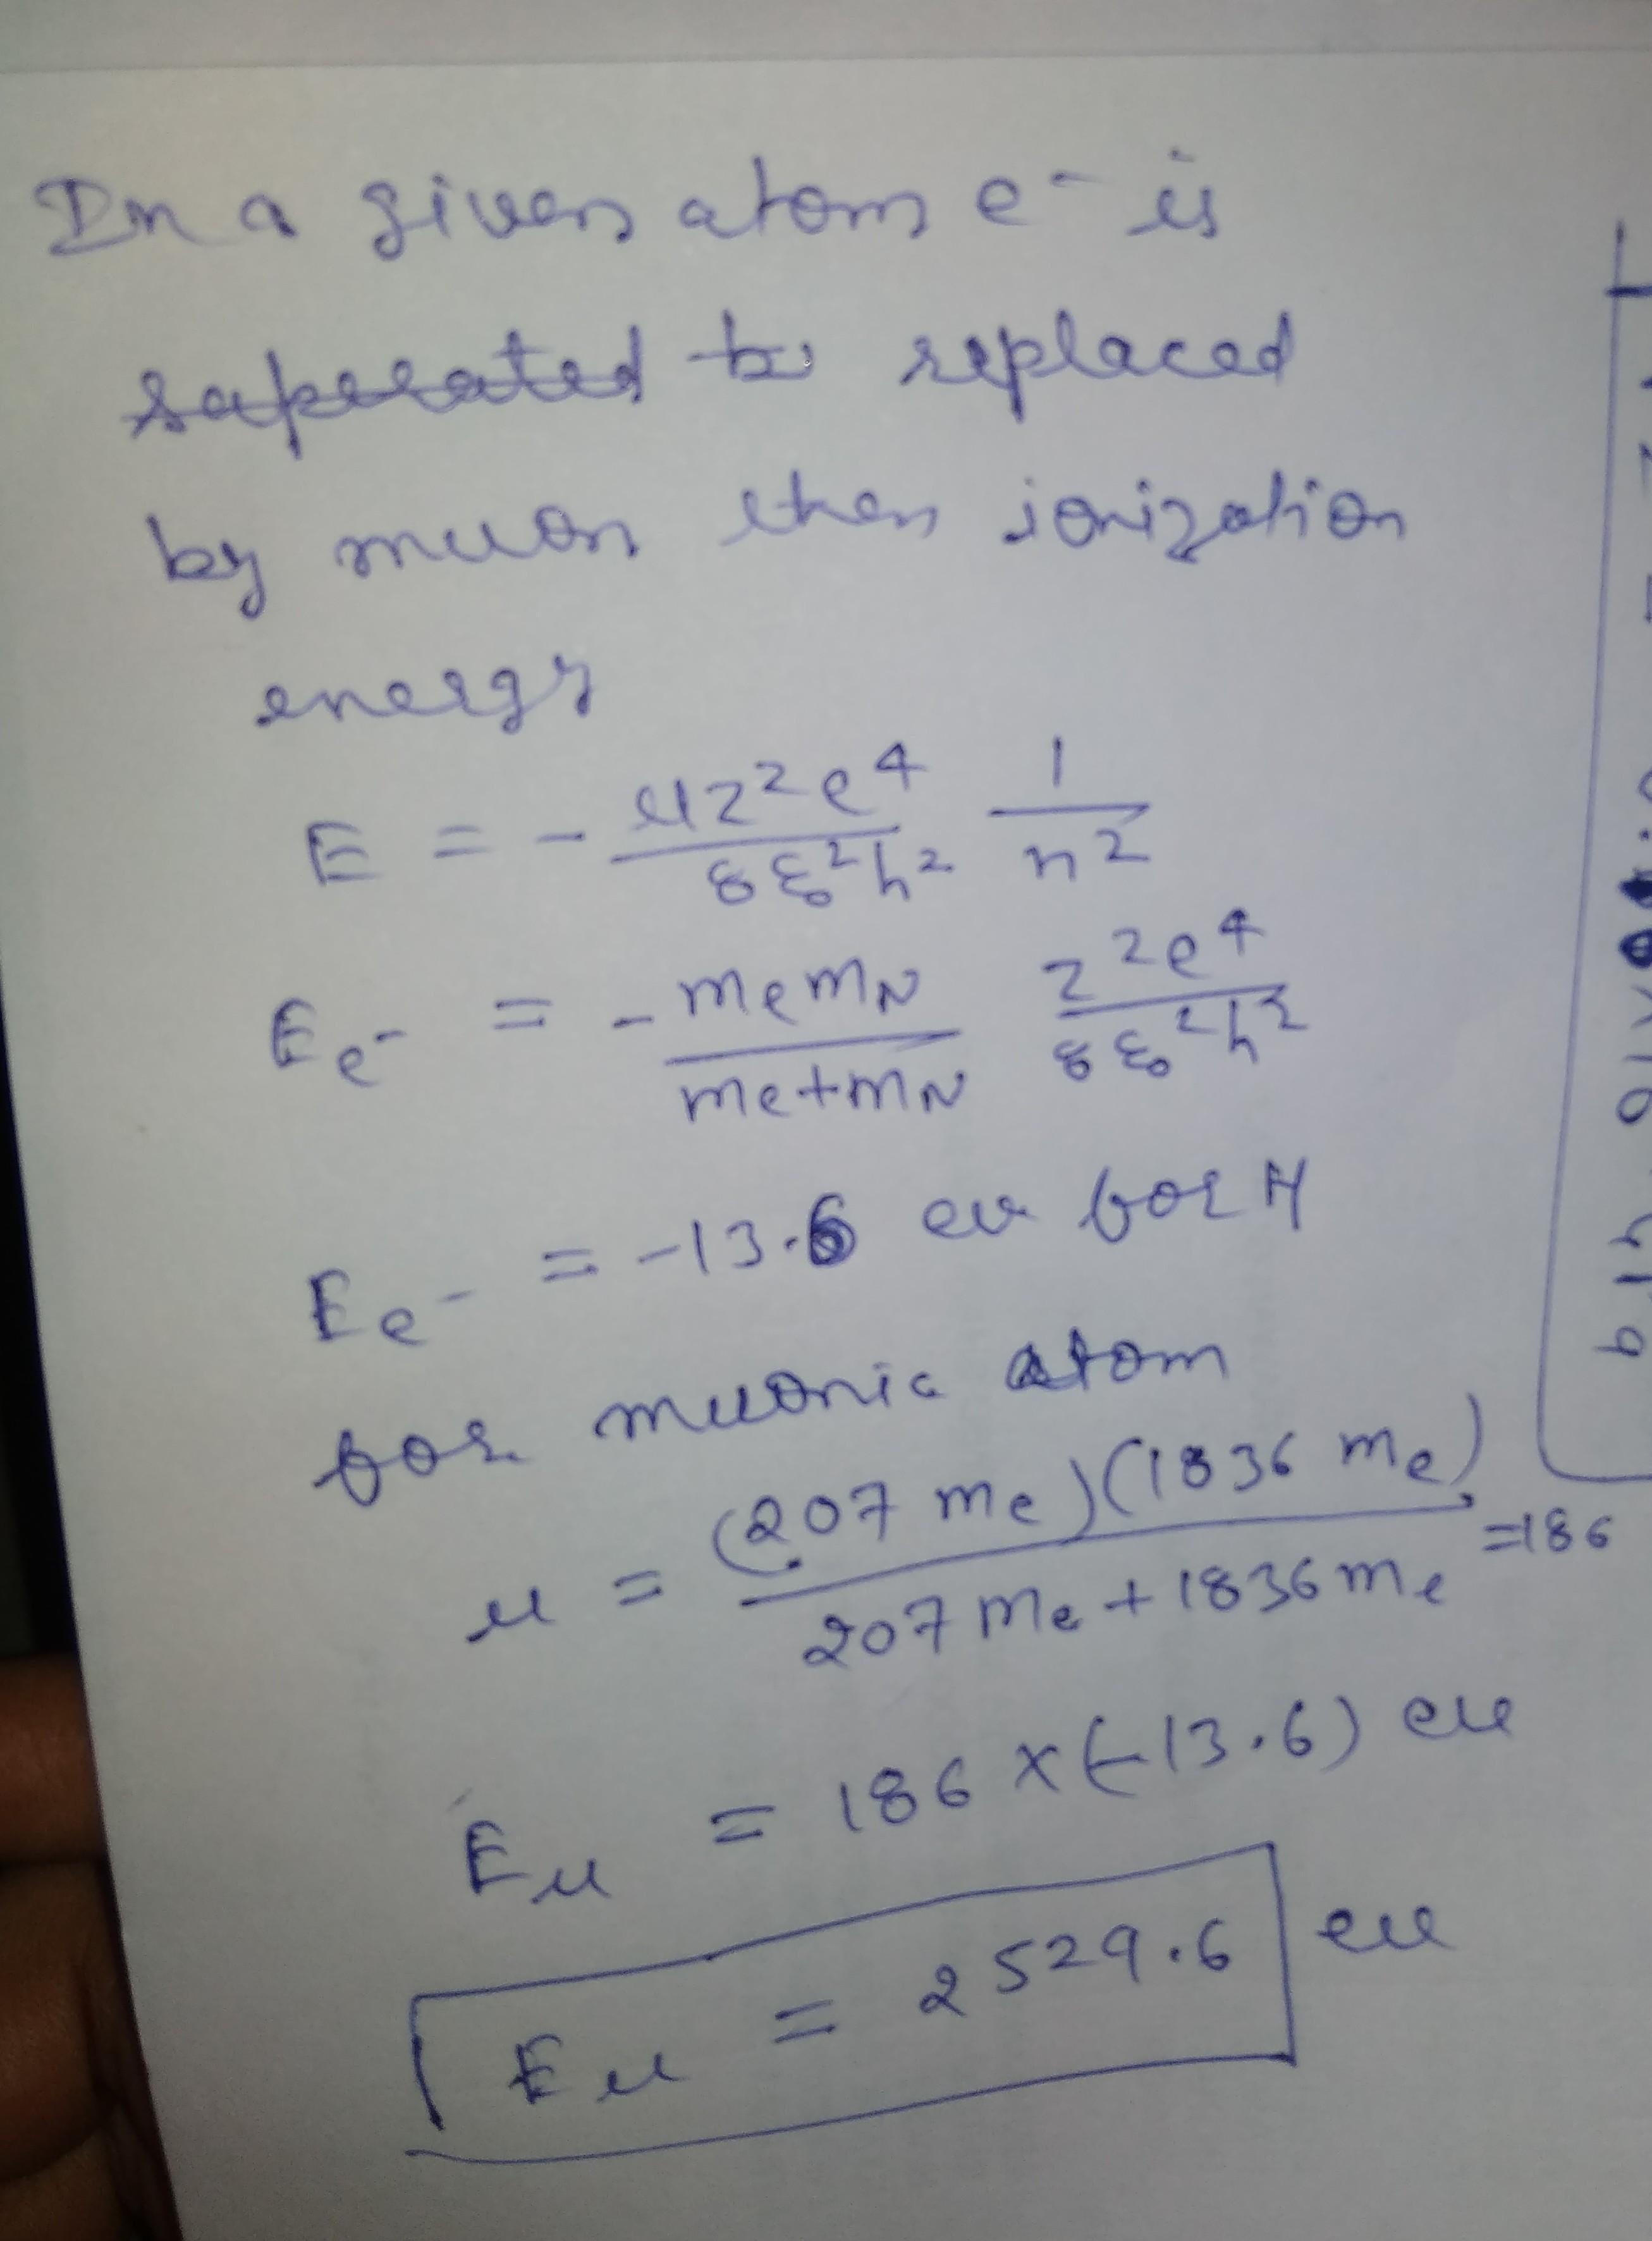 In a given atom e⁻ is
saperated be replaced
by muon then ionization
energy
E = - μz²e⁴/8ε₀²h² 1/n²
Ee⁻ = - memN/me+mN z²e⁴/8ε₀²h²
Ee⁻ = -13.6 ev for H
for muonic atom
μ = (207 me)(1836 me)/207 me + 1836 me = 186
Eμ = 186 × (-13.6) ev
Eμ = 2529.6 ev